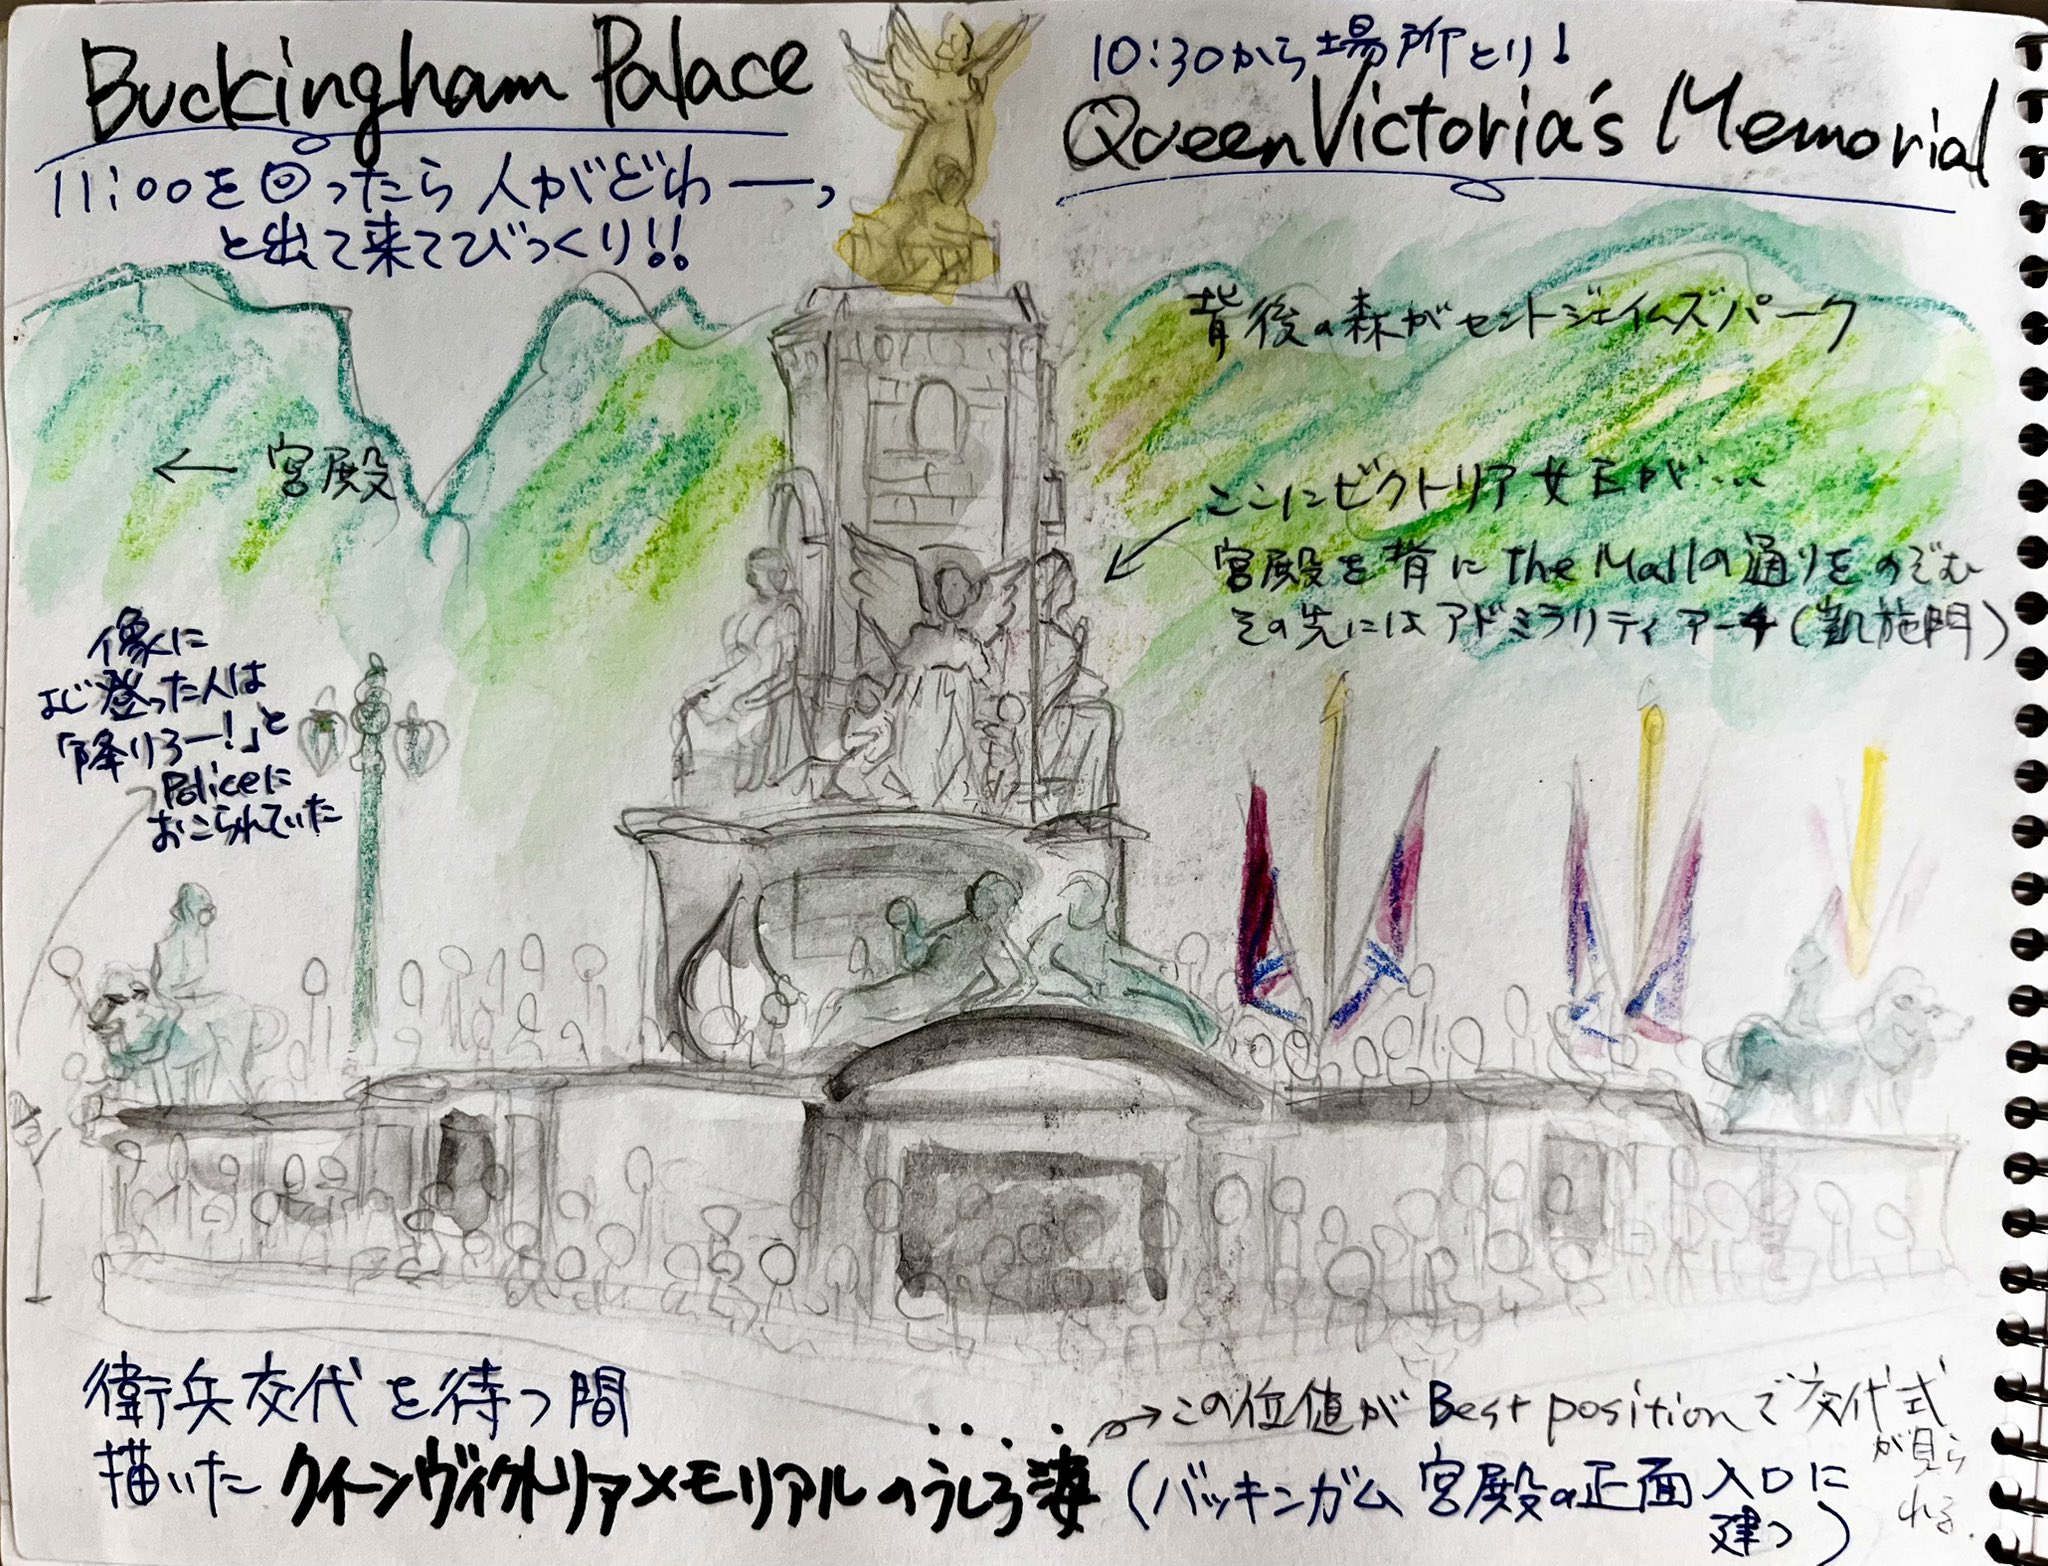 Buckingham Palace
11:00を回ったら人がどわーっ
と出て来てびっくり!!
10:30から場所とり!
Queen Victoria's Memorial
背後の森がセントジェイムズパーク
← 宮殿
ここにビクトリア女王が…
宮殿を背にthe Mallの通りをのぞむ
その先にはアドミラリティアーチ(凱旋門)
像に
よじ登った人は
「降りろー!」と
Policeに
おこられていた
衛兵交代を待つ間
描いた クイーンヴィクトリアメモリアルのうしろ姿
→この位値がBest positionで交代式
が見ら
れる.
(バッキンガム宮殿の正面入口に
建つ)